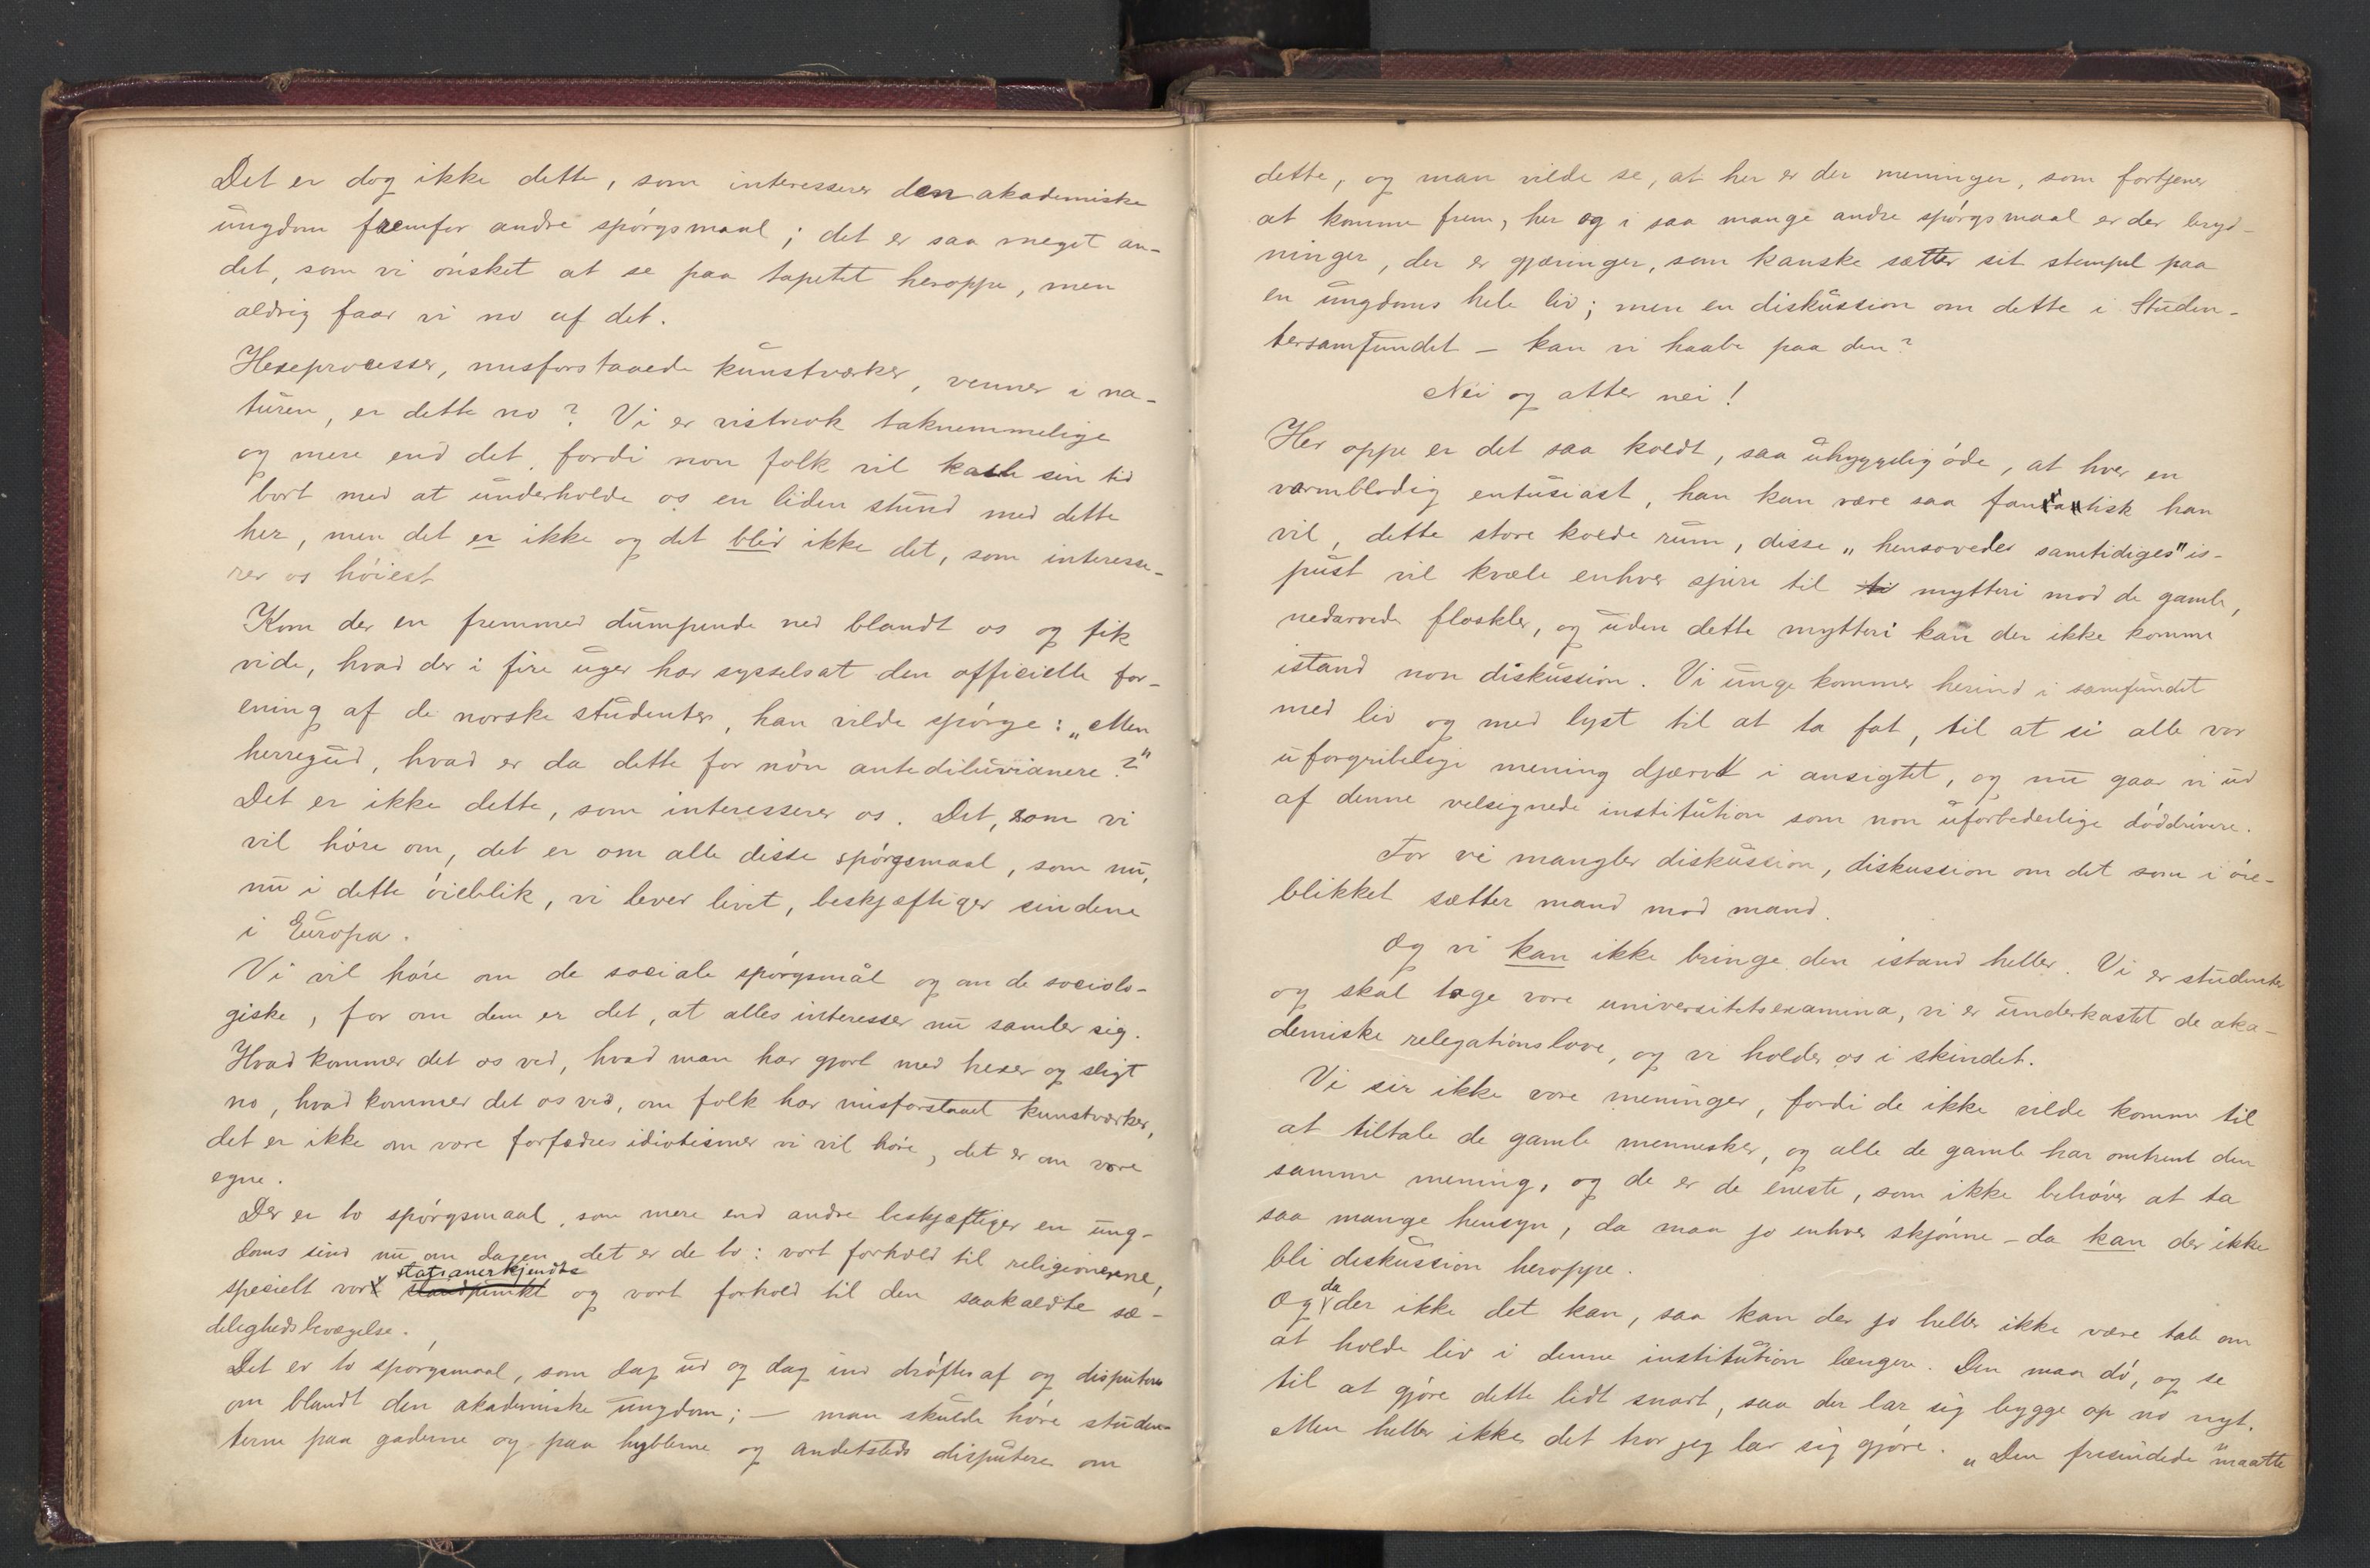 Det er dog ikke dette, som interesserer den akademiske
ungdom fremfor andre spórgsmaal; det er saa meget an-
det, som vi ónsket at se paa tapetet heroppe, men
aldrig faar vi no af det.
Hexeprocesser, misforstaaede kunstværker, venner i na-
turen, er dette no? Vi er vistnok taknemmelige
og mere end det, fordi non folk vil kaste sin tid
bort med at underholde os en liden stund med dette
her, men det er ikke og det blir ikke det, som interesse-
rer os hóiest
Kom der en fremmed dumpende ned blandt os og fik
vide, hvad der i fire uger har sysselsat den officielle for-
ening af de norske studenter, han vilde spórge: „Men
herregud, hvad er da dette for nón antediluvianere?"
Det er ikke dette, som interesserer os. Det, som vi
vil hóre om, det er om alle disse spórgsmaal, som nu,
nu i dette óieblik, vi lever livet, beskjæftiger sindene
i Europa.
Vi vil hóre om de sociale spórgsmål og om de sociolo-
giske, for om dem er det, at alles interesser nu samler sig.
Hvad kommer det os ved, hvad man har gjort med hexer og sligt
no, hvad kommer det os ved, om folk har misforstaaet kunstværker,
det er ikke om vore forfædres idiotismer vi vil hóre, det er om vore
egne.
Der er to spórgsmaal, som mere end andre beskjæftiger en ung-
doms sind nu om dagen, det er de to: vort forhold til religionerne,
statsanerkjendte
specielt vor standpunkt og vort forhold til den saakaldte sæ-
delighedsbevægelse.
Det er to spórgsmaal, som dag ud og dag ind dróftes af og disputeres
om blandt den akademiske ungdom; — man skulde hóre studen-
terne paa gaderne og paa hyblerne og andetsteds disputere om
dette, og man vilde se, at her er der meninger, som fortjener
at komme frem, her og i saa mange andre spórgsmaal er der bryd-
ninger, der er gjæringer, som kanske sætter sit stempel paa
en ungdoms hele liv; men en diskussion om dette i Studen-
tersamfundet — kan vi haabe paa den?
Nei og atter nei!
Her oppe er det saa koldt, saa uhyggelig óde, at hver en
varmblodig entusiast, han kan være saa fantastisk han
vil, dette store kolde rum, disse „hensovedes samtidiges" is-
pust vil kvæle enhver spire til ti mytteri mod de gamle,
nedarvede floskler, og uden dette mytteri kan der ikke komme
istand non diskussion. Vi unge kommer herind i samfundet
med liv og med lyst til at ta fat, til at si alle vor
uforgribelige mening djærvt i ansigtet, og nu gaar vi ud
af denne velsignede institution som non uforbederlige dóddrivere.
For vi mangler diskussion, diskussion om det som i óie-
blikket sætter mand mod mand.
Og vi kan ikke bringe den istand heller. Vi er studenter
og skal tage vore universitetsexamina, vi er underkastet de aka-
demiske relegationslove, og vi holder os i skindet.
Vi sir ikke vore meninger, fordi de ikke vilde komme til
at tiltale de gamle mennesker, og alle de gamle har omtrent den
samme mening, og de er de eneste, som ikke behóver at ta
saa mange hensyn, da maa jo enhver skjónne – da kan der ikke
bli diskussion heroppe.
da
Og der ikke det kan, saa kan der jo heller ikke være tale om
at holde liv i denne institution længere. Den maa dó, og se
til at gjóre dette lidt snart, saa der lar sig bygge op no nyt.
Men heller ikke det tror jeg lar sig gjóre. „Den frisindede" maatte